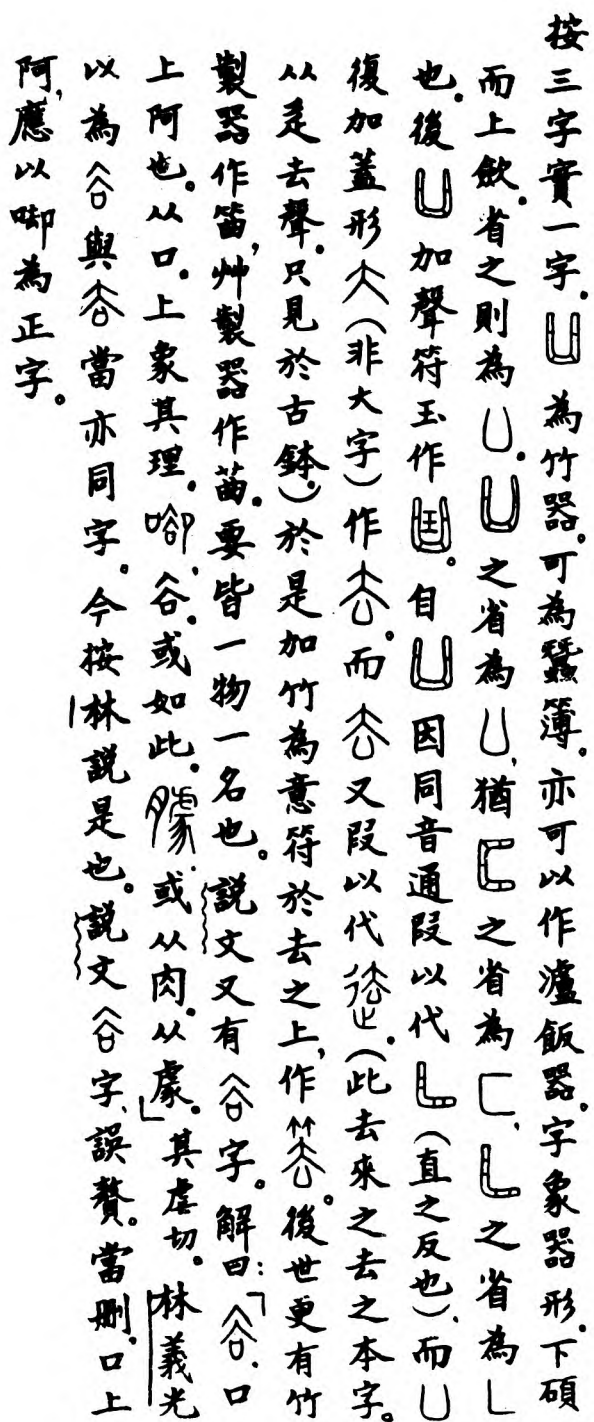 按三字實一字。凵為竹器。可為蠶簿。亦可以作瀘飯器。字象器形。下碩
而上歛。省之則為凵。凵之省為凵,猶匚之省為匚、乚之省為乚
也。後凵加聲符玉作。自凵因同音通叚以代乚(直之反也)、而凵
復加蓋形大(非大字)作去。而去又叚以代。(此去來之去之本字。
从辵去聲。只見於古鉢。)於是加竹為意符於去之上,作筶。後世更有竹
製器作笛,艸製器作苖。要皆一物一名也。說文又有谷字。解曰:「谷。口
上阿也。从口。上象其理。㖸,谷。或如此。臄。或从肉。从豦。」其虐切。林義光
以為谷與去當亦同字。今按林說是也。說文谷字、誤贅。當刪。口上
阿,應以啣為正字。